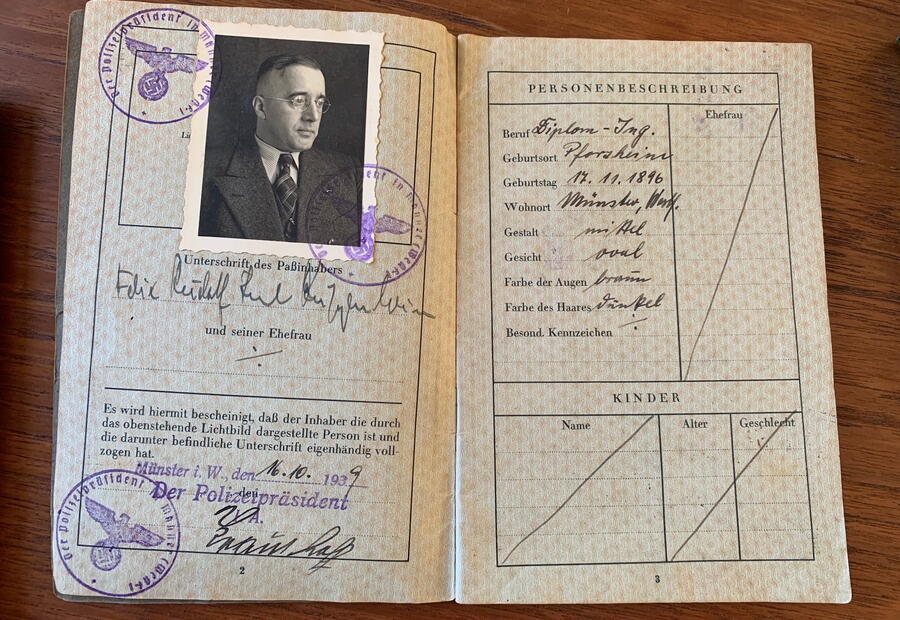 Der Polizeipräsident in Münster (Westf.)
Unterschrift des Paßinhabers
Felix Rudolf
und seiner Ehefrau
Es wird hiermit bescheinigt, daß der Inhaber die durch
das obenstehende Lichtbild dargestellte Person ist und
die darunter befindliche Unterschrift eigenhändig voll-
zogen hat.
Münster i. W., den 16.10. 1939
den
Der Polizeipräsident
I.A.
Der Polizeipräsident in Münster (Westf.)
2
PERSONENBESCHREIBUNG
Ehefrau
Beruf Diplom-Ing.
Geburtsort Pforzheim
Geburtstag 17.11.1896
Wohnort Münster, Westf.
Gestalt mittel
Gesicht oval
Farbe der Augen braun
Farbe des Haares dunkel
Besond. Kennzeichen
KINDER
Name Alter Geschlecht
3